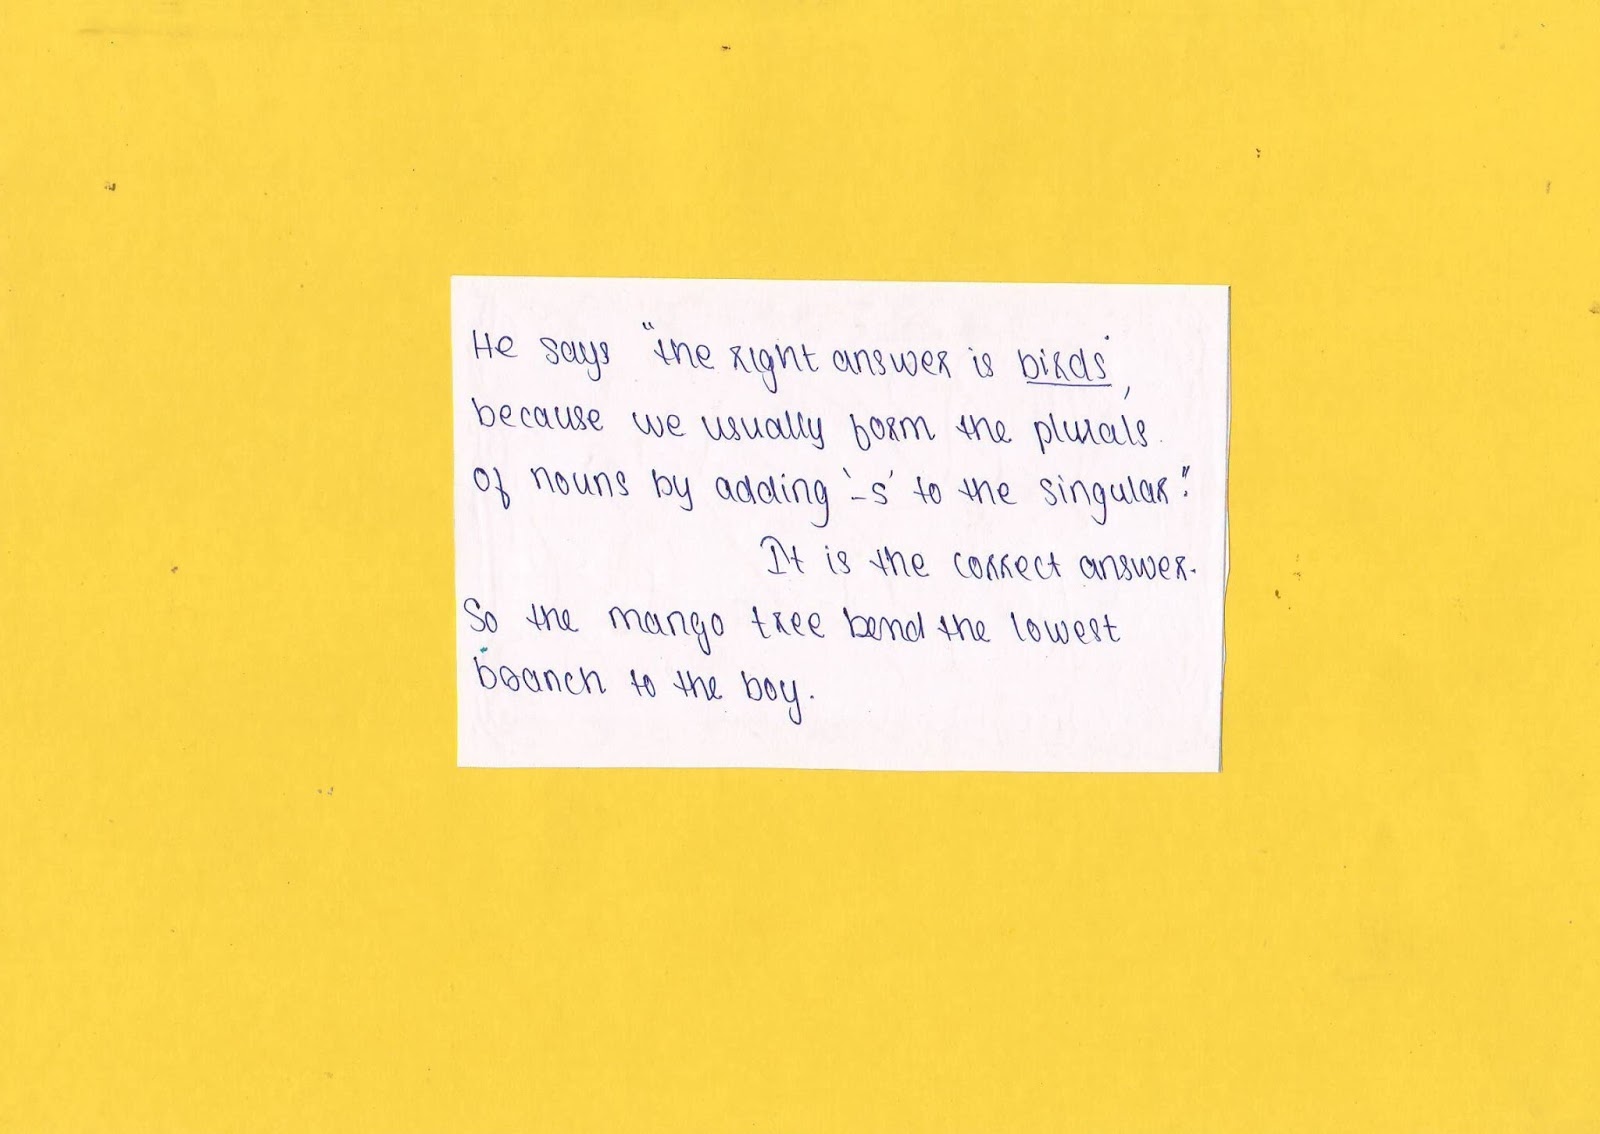 He says "the right answer is birds",
because we usually form the plurals
of nouns by adding '-s' to the singular".
It is the correct answer.
So the mango tree bend the lowest
branch to the boy.